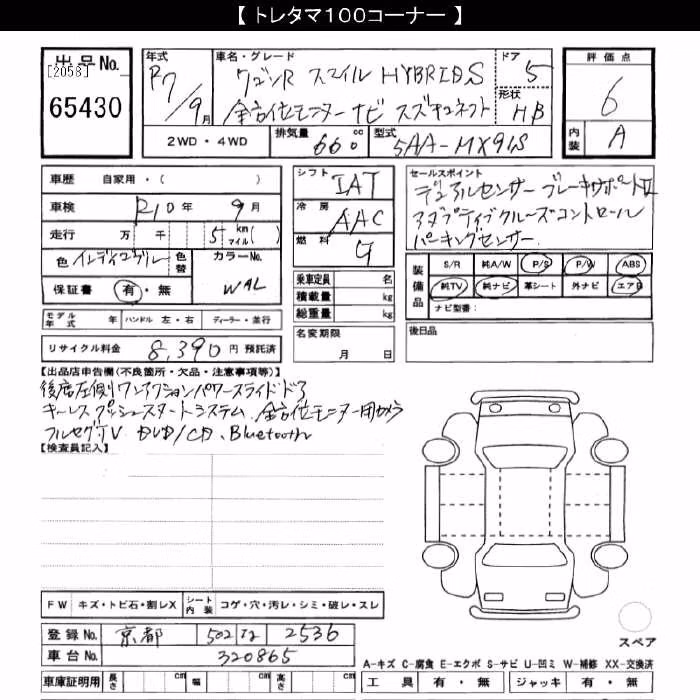 【 トレタマ100コーナー 】
出品No.
[2058]
65430
年式 R7/9月
車名・グレード
ワゴンR スマイル HYBRID S
全方位モニターナビ スズキコネクト
ドア 5
形状 HB
評価点
6
内装 A
2WD・4WD
排気量 660 cc
型式 5AA-MX91S
車歴 自家用・( )
車検 R10年 9月
走行 万 千 5 km マイル( )
色 インディゴブルー 色替
カラーNo. WAL
保証書 有・無
シフト IAT
冷房 AAC
燃料 G
乗車定員 名
積載量 kg
総重量 kg
名変期限
月 日
セールスポイント
デュアルセンサーブレーキサポートⅡ
アダプティブクルーズコントロール
パーキングセンサー
装備品
S/R 純A/W P/S P/W ABS
純TV 純ナビ 革シート 外ナビ エアB
ナビ型番:
後日品
モデル年式 年 ハンドル 左・右 ディーラー・並行
リサイクル料金 8,390 円 預託済
【出品店申告欄(不良箇所・欠品・注意事項等)】
後席左側ワンアクションパワースライドドア
キーレスプッシュスタートシステム、全方位モニター用カメラ
フルセグTV DVD/CD、Bluetooth
【検査員記入】
FW キズ・トビ石・割レX シート内装 コゲ・穴・汚レ・シミ・破レ・スレ
登録No. 京都 502 2536
車台No. 320865
車庫証明用 長さ cm 幅 cm 高さ cm
スペア
A-キズ C-腐食 E-エクボ S-サビ U-凹ミ W-補修 XX-交換済
工具 有・無 ジャッキ 有・無